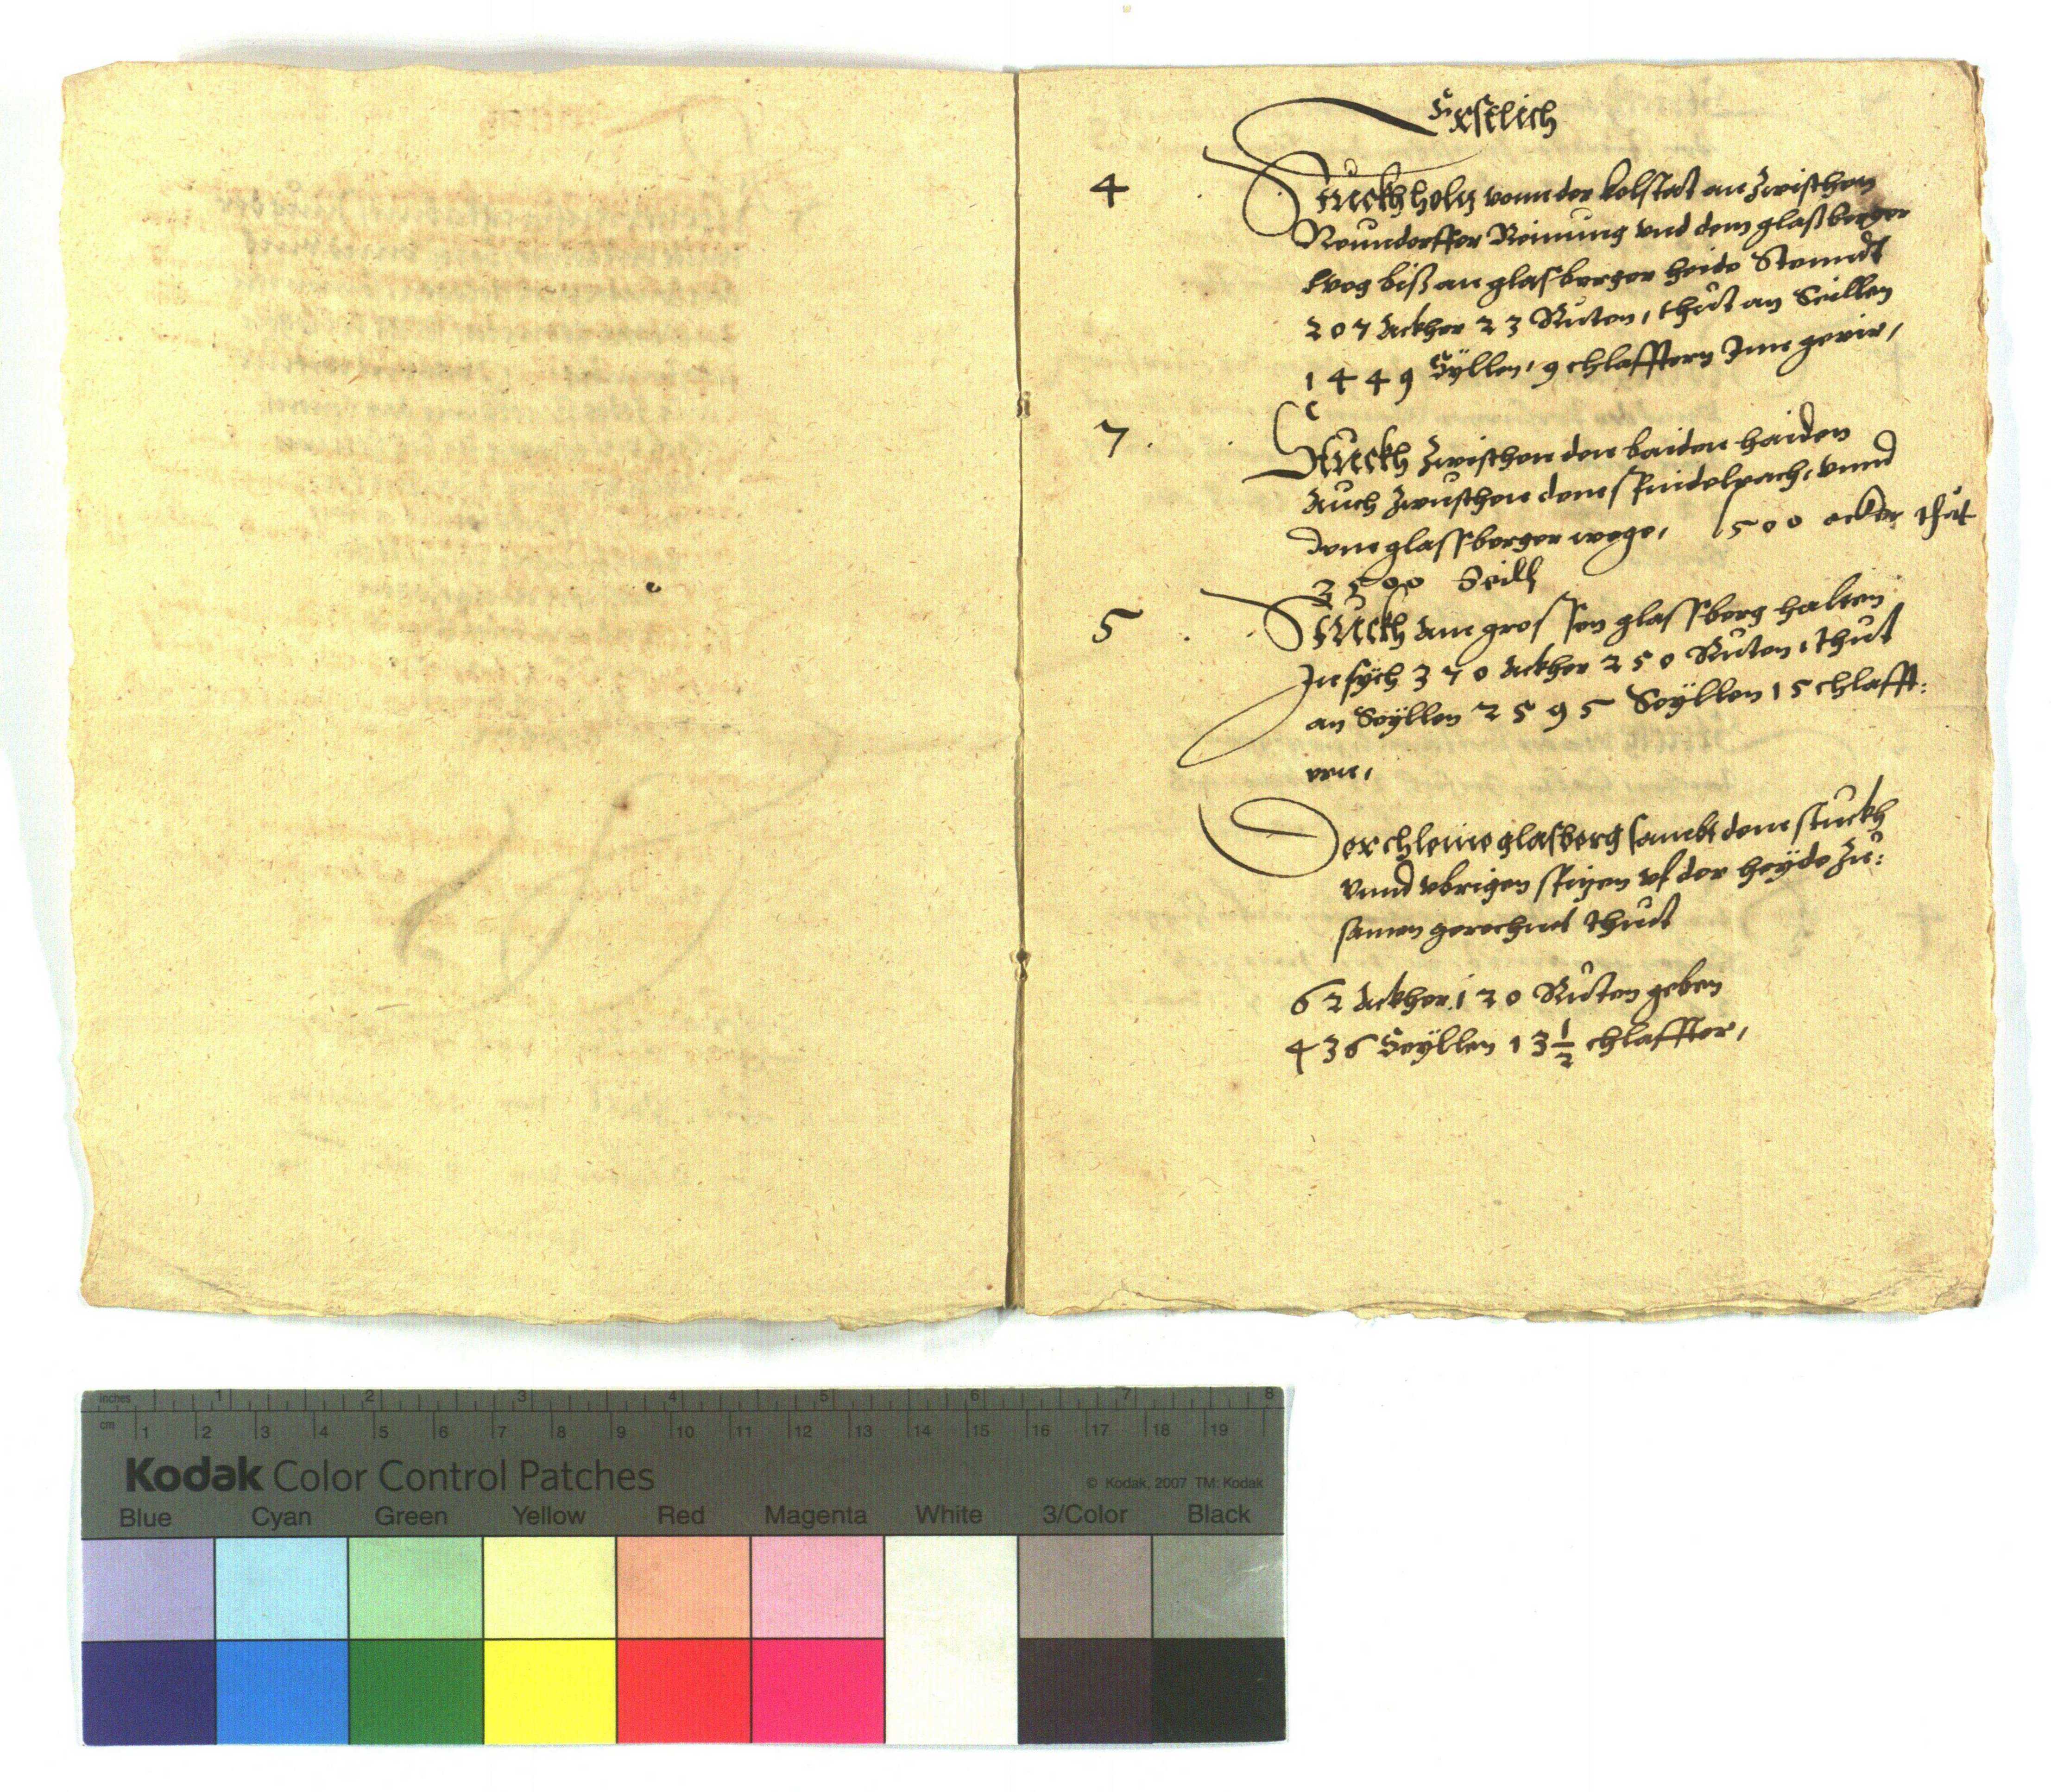 Erstlich
4 Stuckh holtz vonn der kolstat an Zwischen
Neundorffer Reinung vnd dem glaßberger
weg biß an glasberger heide Stenndt
207 Ackher 23 Ruten, thut an Seillen
1449 Syllen, 9 chlafftern Inn gevir,
7. Stuckh Zwischen den baiden haiden
Auch Zwuschen dem spindelpach, vnnd
dem glassberger wege, 500 acker thut
3500 Seill
5. Stuckh Am grossen glassberg halten
In sych 370 Ackher 250 Ruten, thut
an Seyllen 2595 Seyllen 15 chlafft:
ern,
Der chleine glasberg sambt dem stuckh
vnnd vbrigen spizen vf der heyde Zu:
samen gerechnet thut
62 Ackher, 120 Ruten geben
436 Seyllen 13 1/2 chlaffter,
inches 1 2 3 4 5 6 7 8
cm 1 2 3 4 5 6 7 8 9 10 11 12 13 14 15 16 17 18 19
Kodak Color Control Patches
© Kodak, 2007 TM: Kodak
Blue Cyan Green Yellow Red Magenta White 3/Color Black